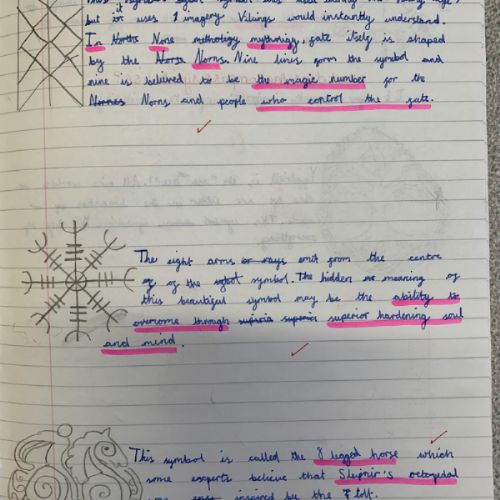 but it uses imagery Vikings would instantly understand.
In North None mythology mythology, fate itself is shaped
by the Norns Norns. Nine lines form the symbol and
nine is believed to be the magic number for the
Nornes Norns and people who control the fate.
The eight arms or rays emit from the centre
of of the symbol. The hidden meaning of
this beautiful symbol may be the ability to
overcome through superior superior hardening soul
and mind.
This symbol is called the 8 legged horse which
some experts believe that Sleipnir's octopedal